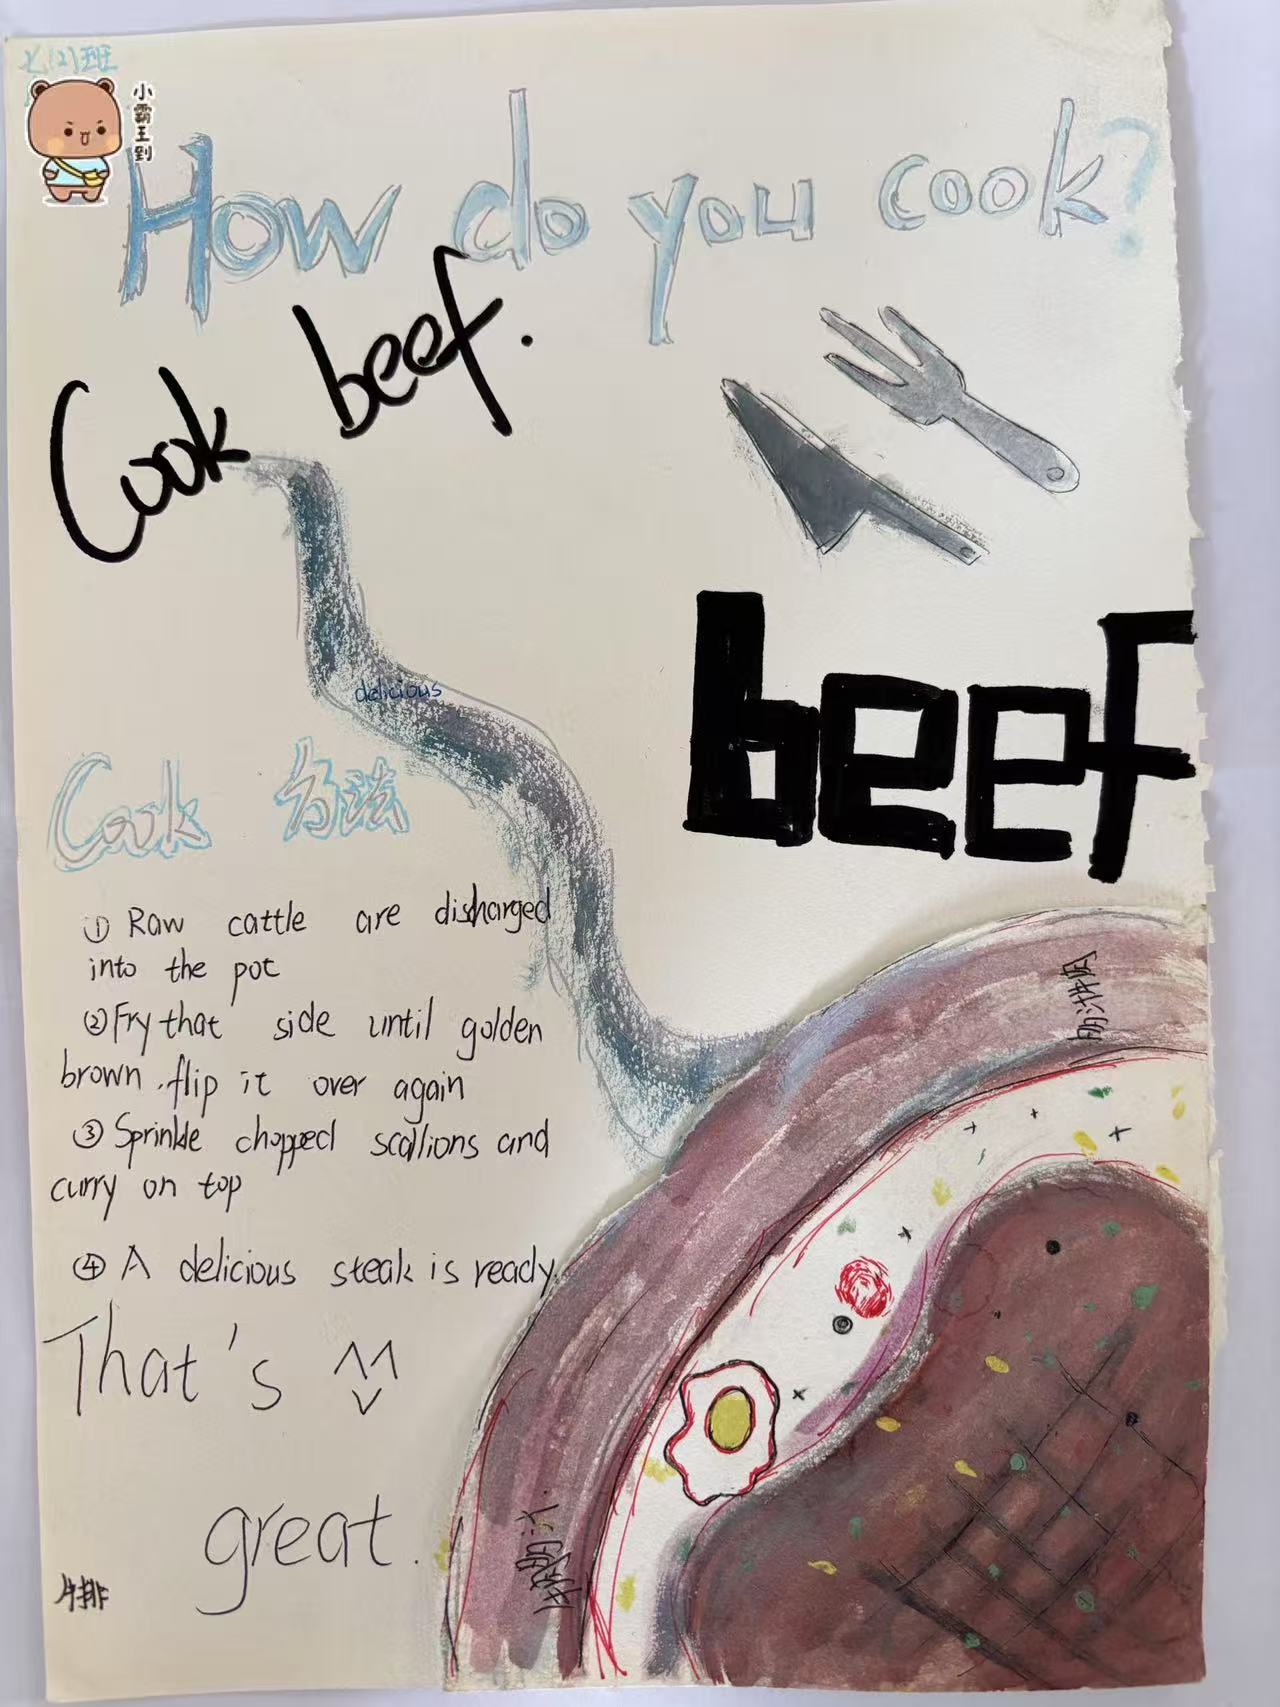 七(2)班
小霸王到
How do you cook?
Cook beef.
beef
delicious
Cook 方法
① Raw cattle are discharged
into the pot
② Fry that side until golden
brown .flip it over again
③ Sprinkle chopped scallions and
curry on top
④ A delicious steak is ready.
That's
great.
牛排